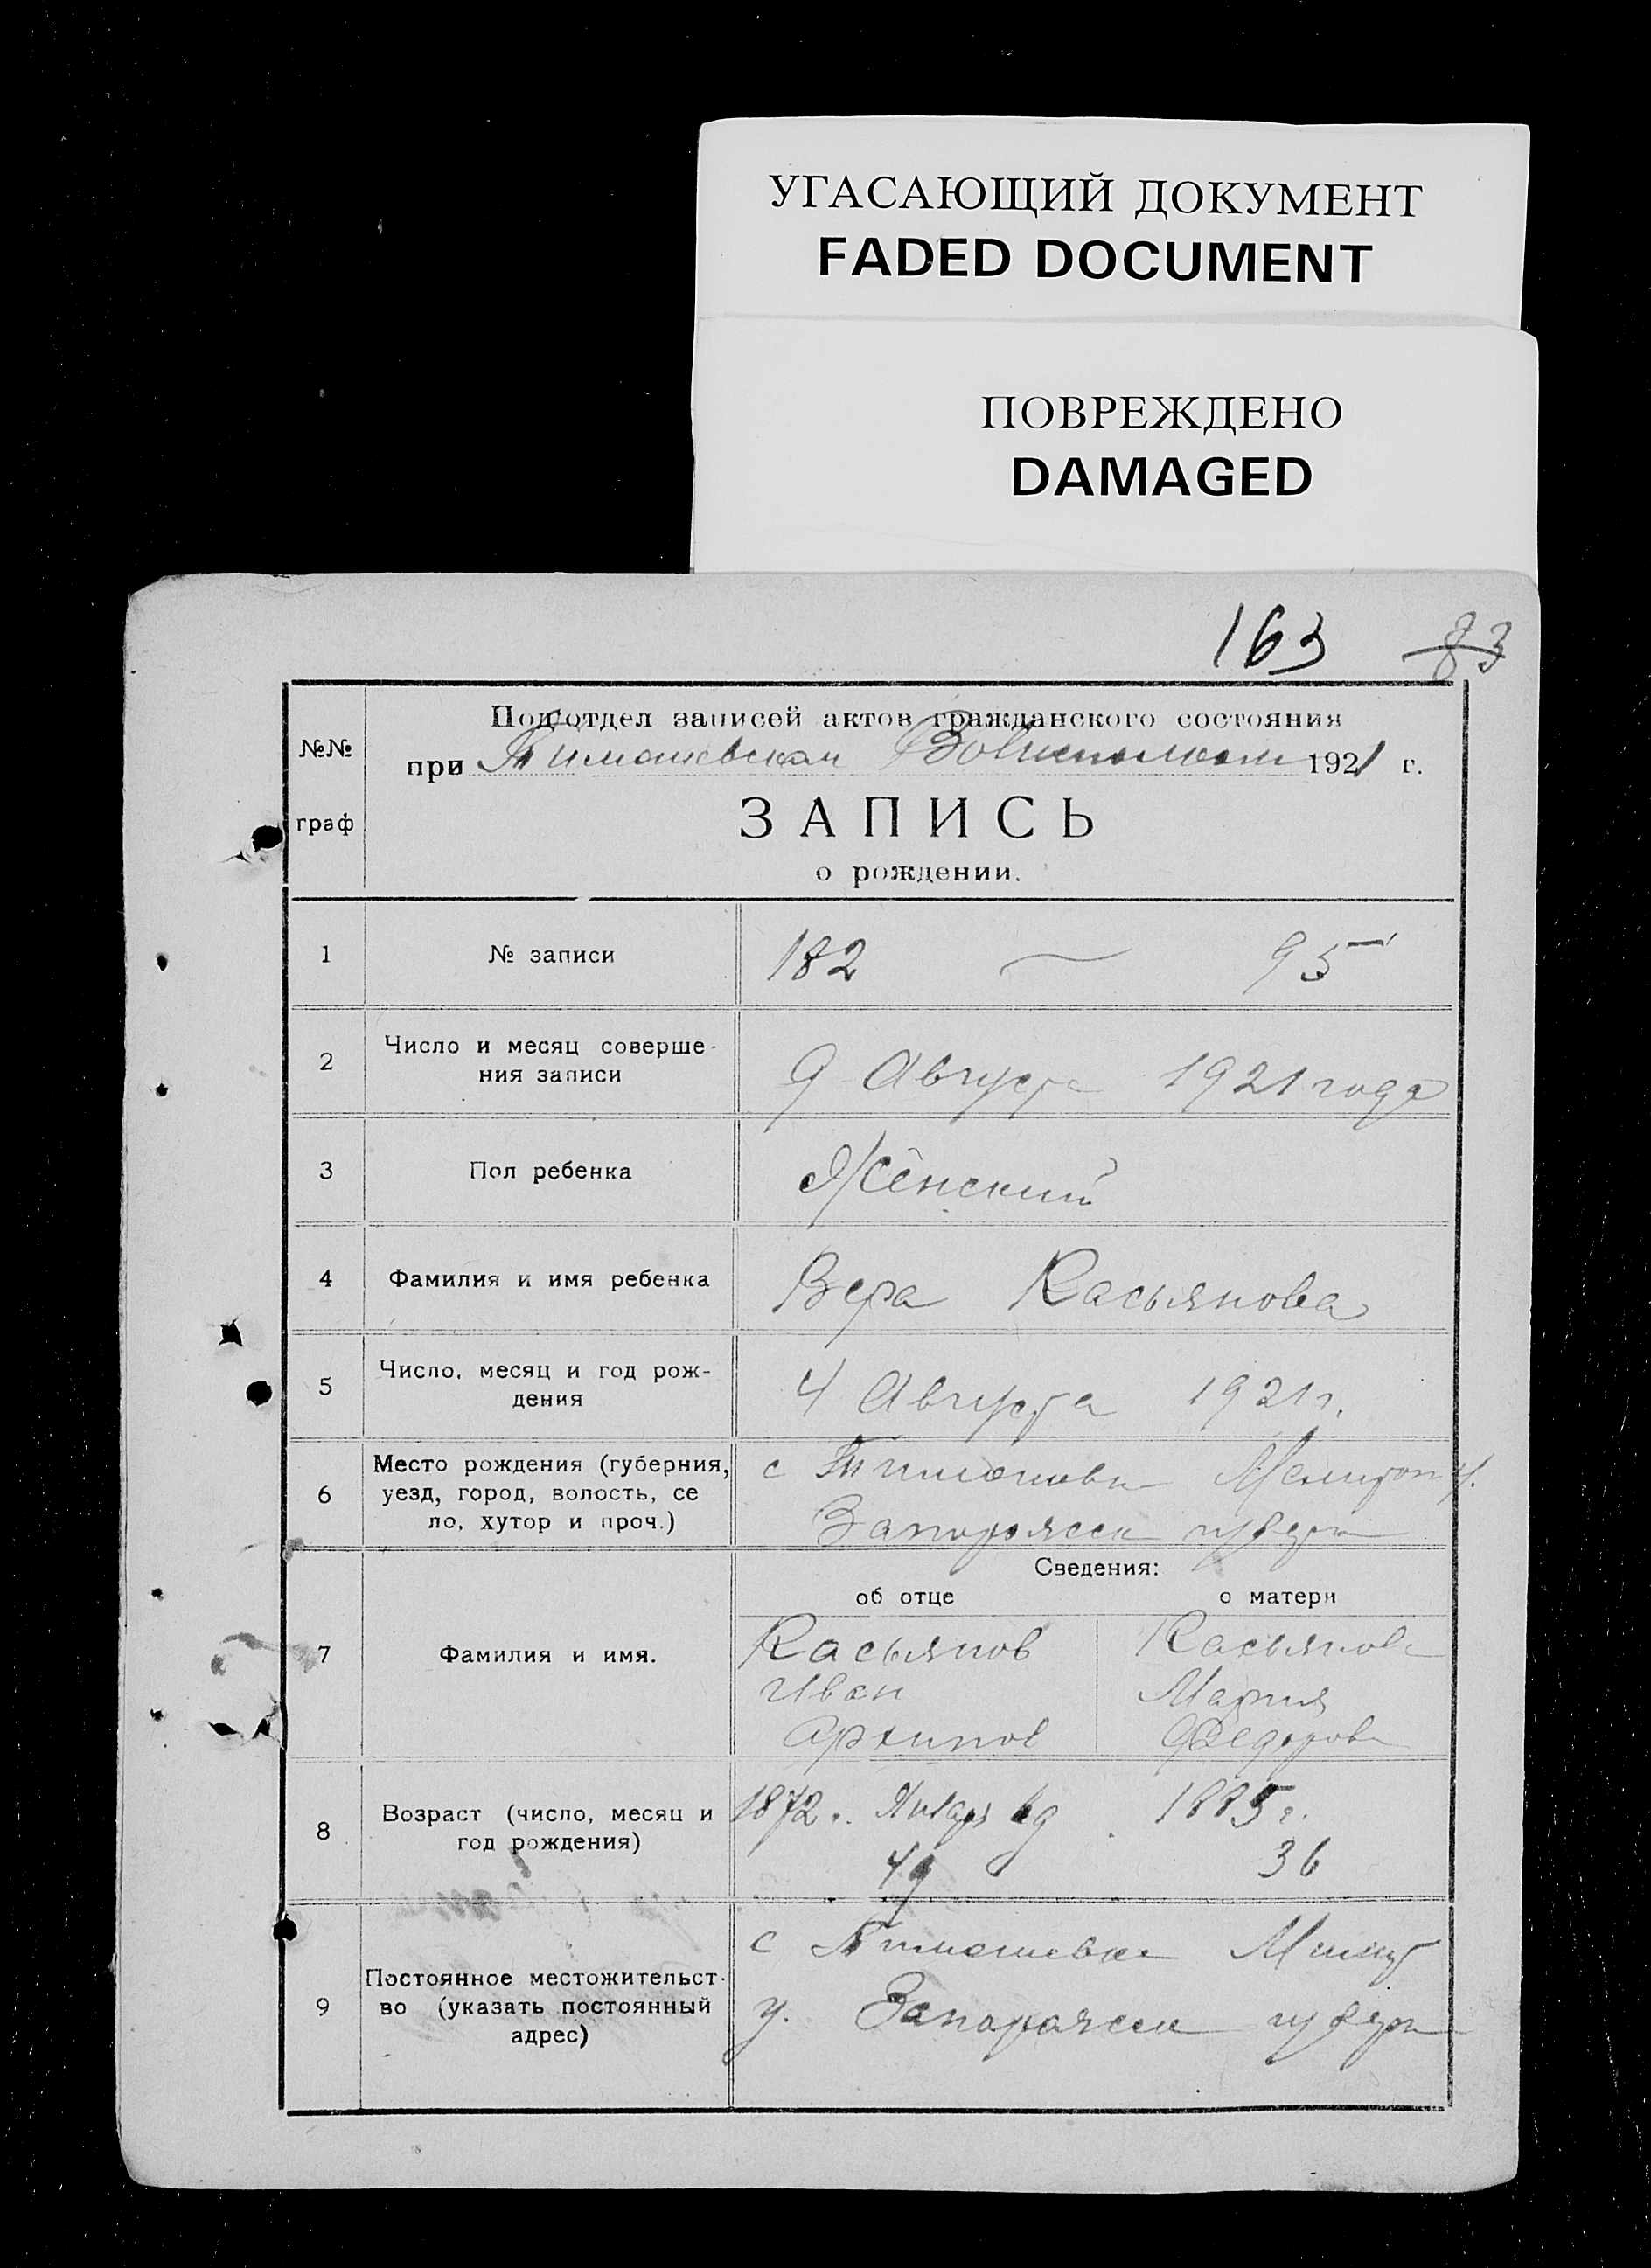 УГАСАЮЩИЙ ДОКУМЕНТ
FADED DOCUMENT
ПОВРЕЖДЕНО
DAMAGED
163 83
№№
граф
Под'отдел записей актов гражданского состояния
при Тимошевском Волисполкоме 1921 г.
ЗАПИСЬ
о рождении.
1 № записи 182 — 95
2 Число и месяц соверше-
ния записи 9 Августа 1921 года
3 Пол ребенка Женский
4 Фамилия и имя ребенка Вера Касьянова
5 Число, месяц и год рож-
дения 4 Августа 1921 г.
6 Место рождения (губерния,
уезд, город, волость, се
ло, хутор и проч.)
с Тимошевка у.
губерн
Сведения:
об отце о матери
7 Фамилия и имя.
Касьянов Касьянова
Иван Мария
Архипов Федорова
8 Возраст (число, месяц и
год рождения)
1872 г. Январ 1885 г.
49 36
9 Постоянное местожительст-
во (указать постоянный
адрес)
с Тимошевка
у. губерн